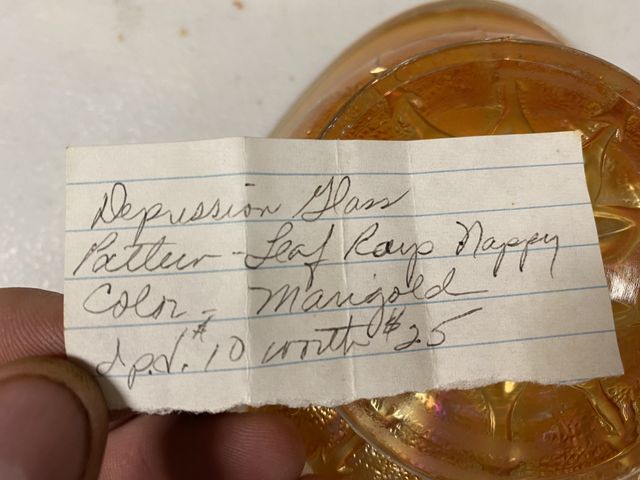 Depression Glass
Pattern - Leaf Rays Nappy
Color - Marigold
I pd. # 10 worth $25